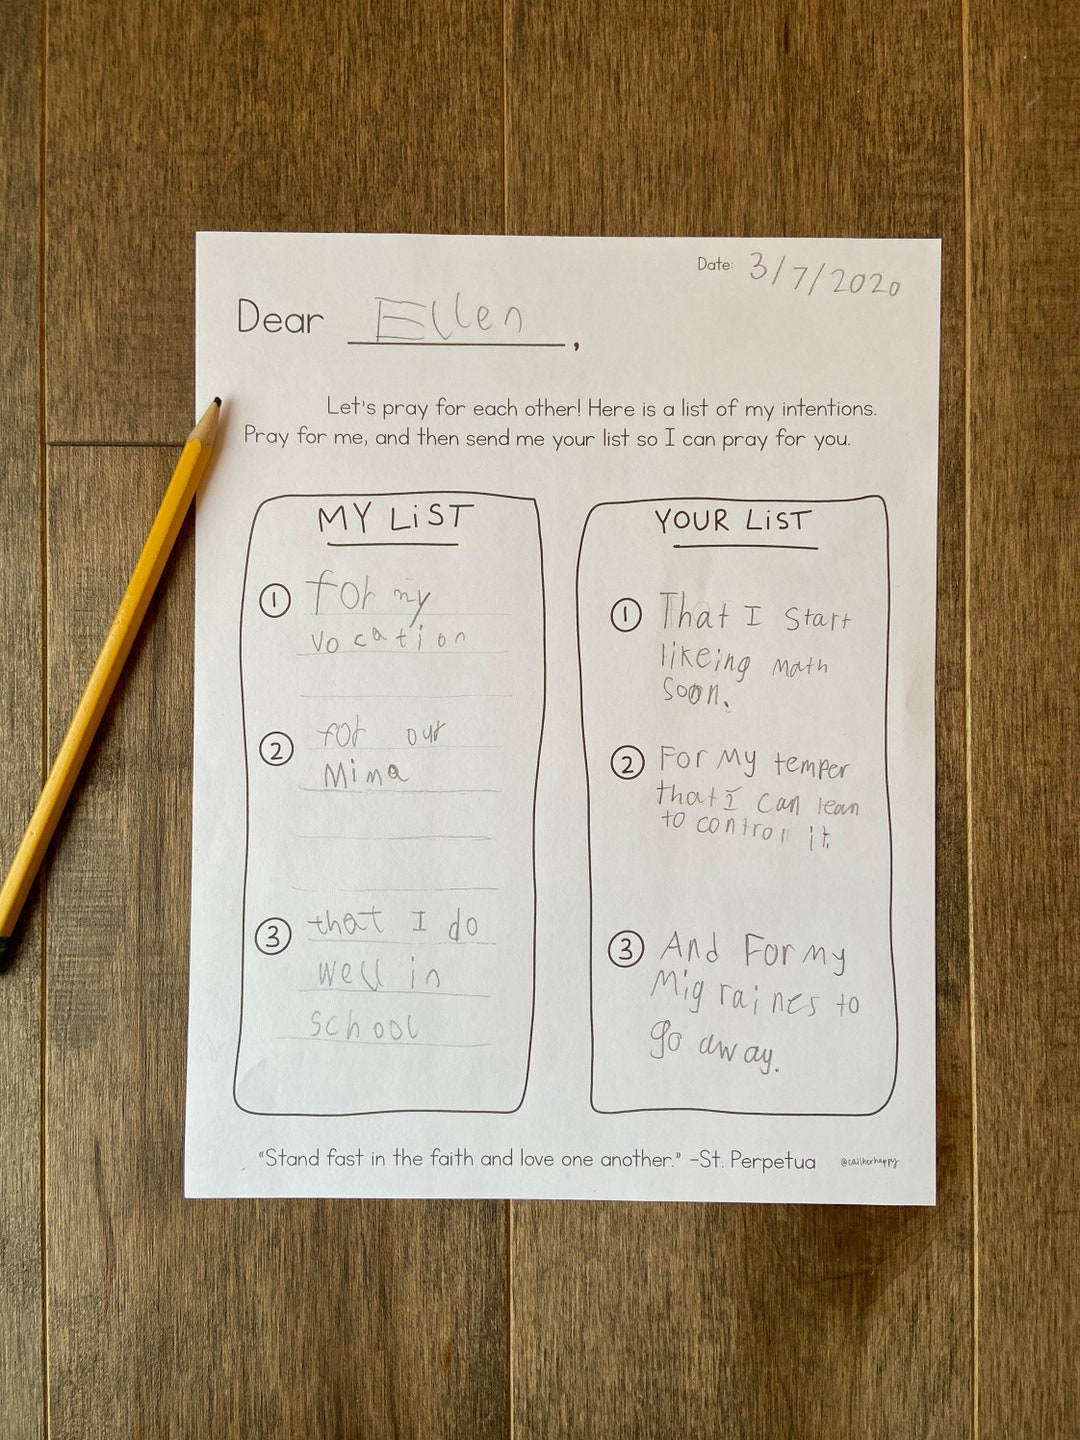 Date: 3/7/2020
Dear Ellen,
Let's pray for each other! Here is a list of my intentions.
Pray for me, and then send me your list so I can pray for you.
MY LiST
1 for my
vocation
2 for our
Mima
3 that I do
well in
school
YOUR LiST
1 That I Start
likeing math
Soon.
2 For My temper
that I can lean
to control it.
3 And For my
Migraines to
go away.
"Stand fast in the faith and love one another." -St. Perpetua
@callherhappy